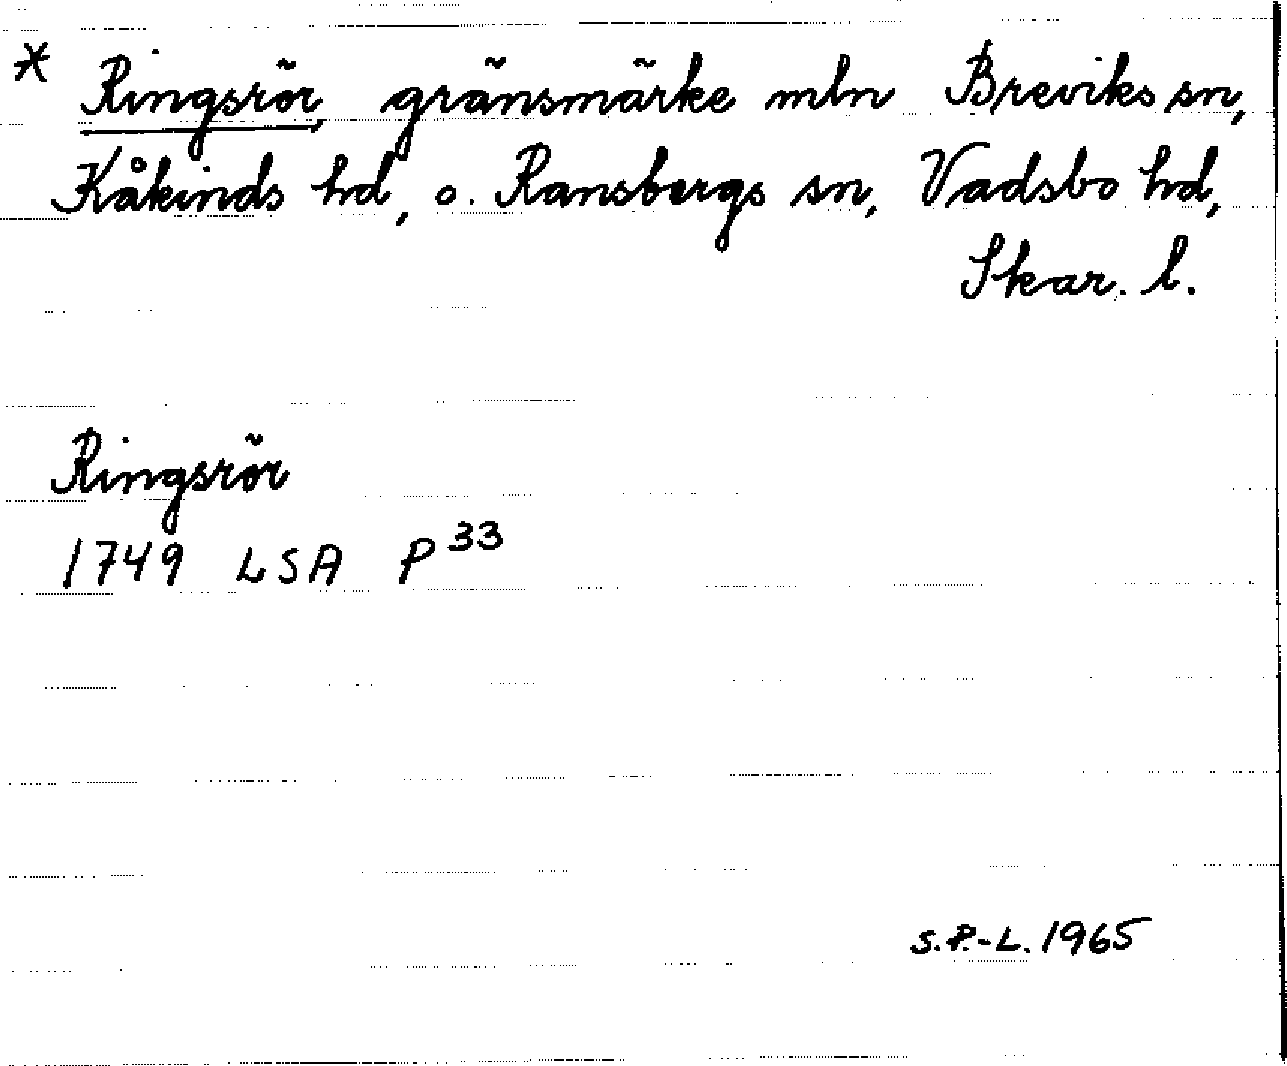 * Ringsrör, gränsmärke mln Breviks sn,
Kåkinds hd, o. Ransbergs sn, Vadsbo hd,
Skar. l.
Ringsrör
1749 LSA P 33
S.P.-L. 1965